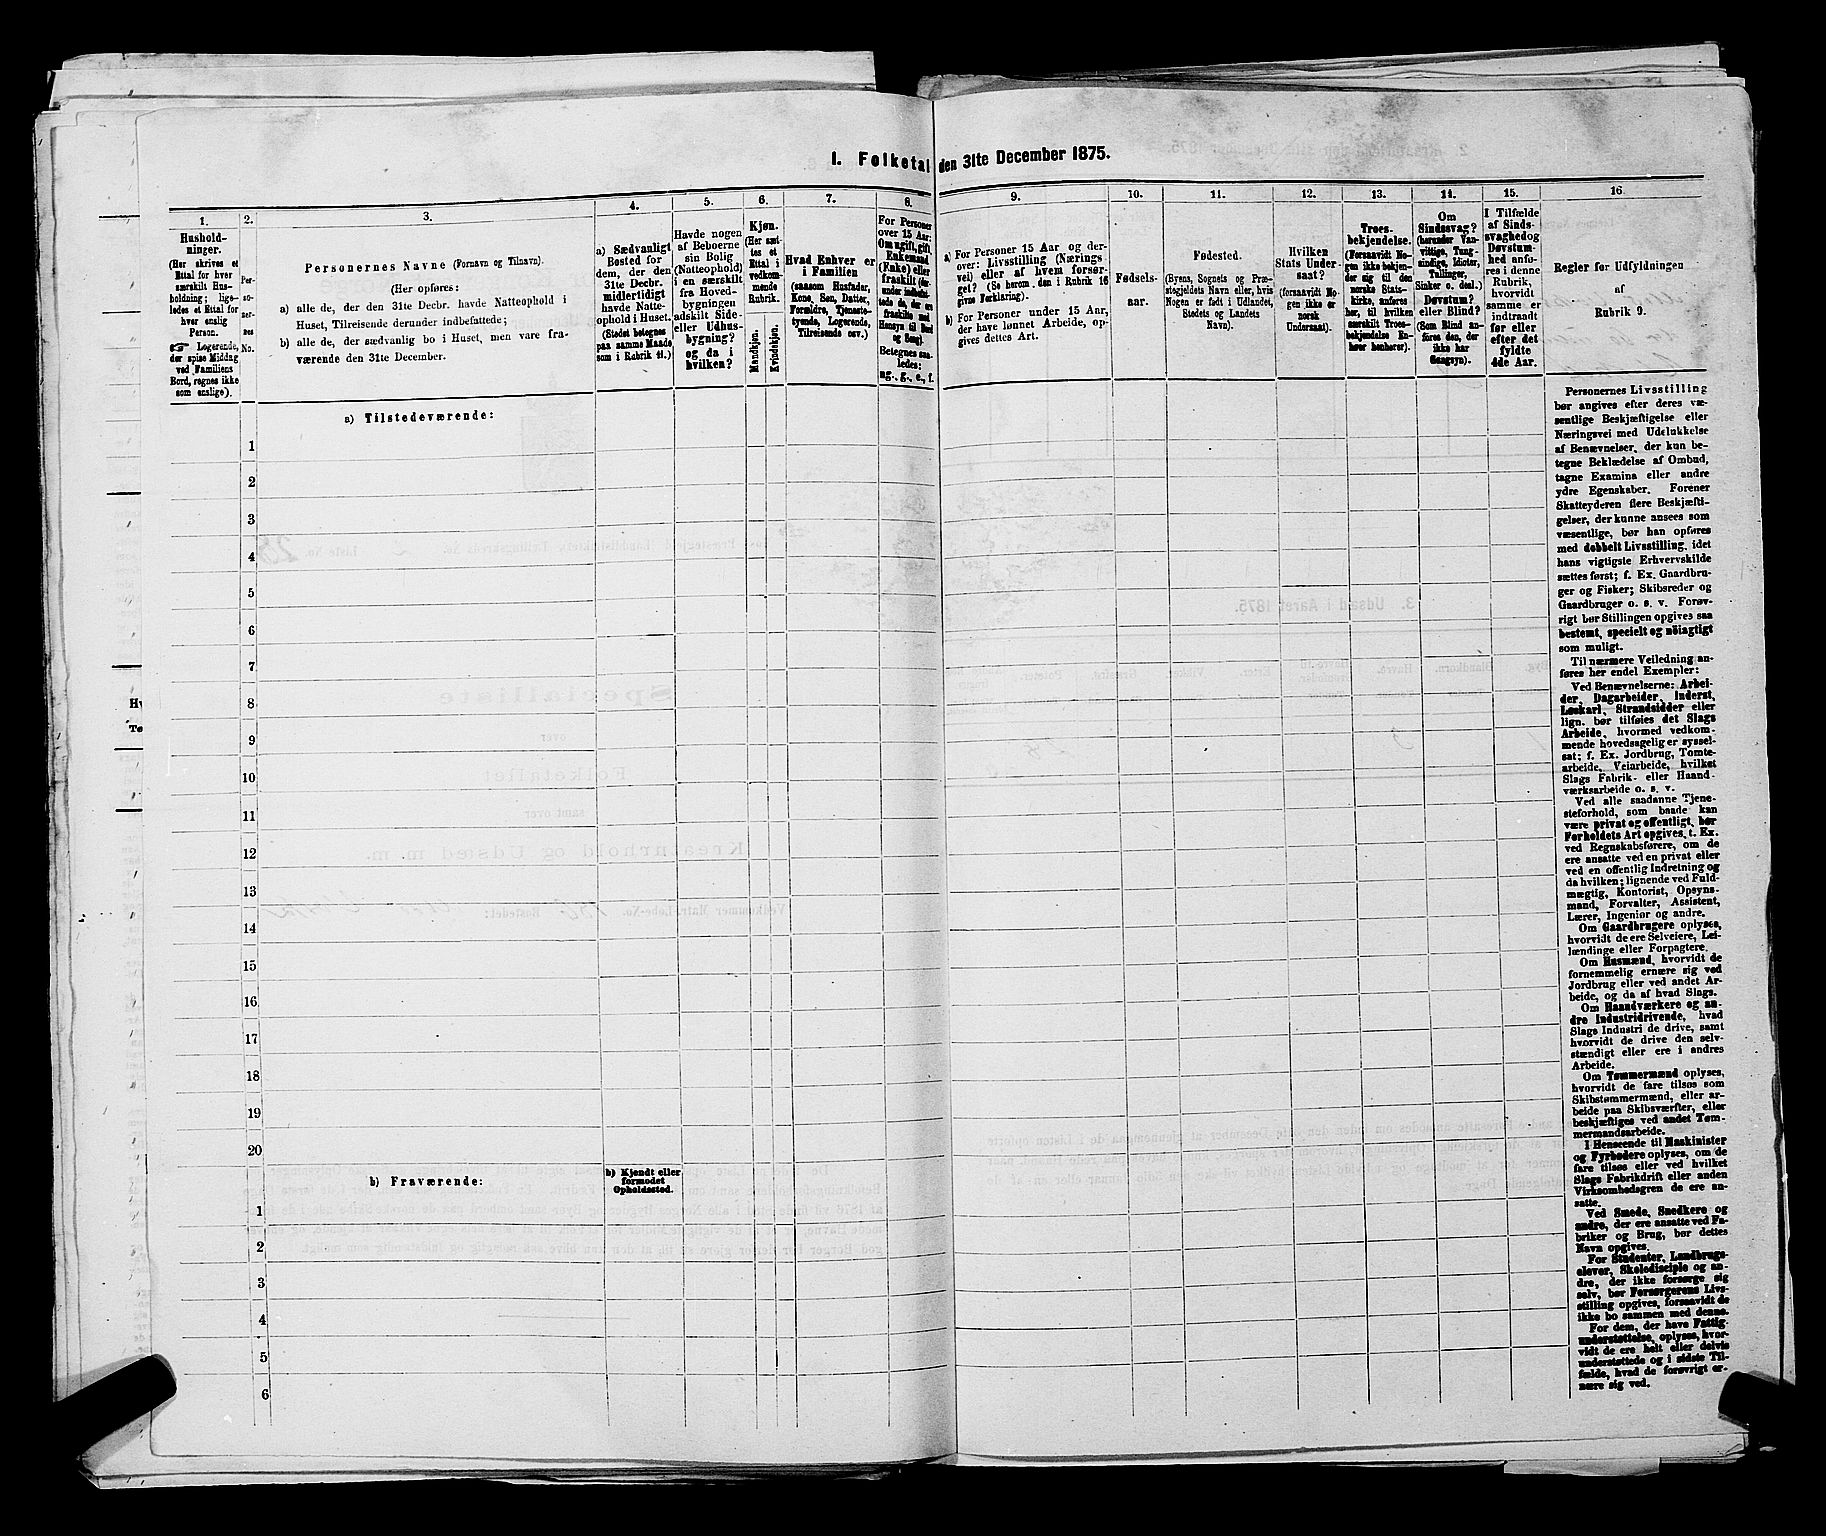 1. Folketal den 31te December 1875.
1.
Hushold-
ninger.
(Her skrives et
Ettal for hver
særskilt Hus-
holdning; lige-
ledes et Ettal for
hver enslig
Person.
☛ Logerende,
der spise Middag
ved Familiens
Bord, regnes ikke
som enslige).
2.
Per-
so-
ner-
nes
No.
3.
Personernes Navne (Fornavn og Tilnavn).
(Her opføres:
a) alle de, der den 31te Decbr. havde Natteophold i
Huset, Tilreisende derunder indbefattede;
b) alle de, der sædvanlig bo i Huset, men vare fra-
værende den 31te December.
4.
a) Sædvanligt
Bosted for
dem, der den
31te Decbr.
midlertidigt
havde Natte-
ophold i Huset.
(Stedet betegnes
paa samme Maade
som i Rubrik 11.)
5.
Havde nogen
af Beboerne
sin Bolig
(Natteophold)
i en særskilt
fra Hoved-
bygningen
adskilt Side-
eller Udhus-
bygning?
og da i
hvilken?
6.
Kjøn.
(Her sæt-
tes et
Ettal i
vedkom-
mende
Rubrik.
Mandkjøn.
Kvindekjøn.
7.
Hvad Enhver er
i Familien
(saasom Husfader,
Kone, Søn, Datter,
Forældre, Tjeneste-
tyende, Logerende,
Tilreisende osv.)
8.
For Personer
over 15 Aar:
Om ugift, gift,
Enkemand
(Enke) eller
fraskilt (der-
under indbefat-
tede de, der ere
fraskilte med
Hensyn til Bord
og Seng).
Betegnes saa-
ledes:
ug., g., e., f.
9.
a) For Personer 15 Aar og der-
over: Livsstilling (Nærings-
vei) eller af hvem forsør-
get? (Se herom, den i Rubrik 16
givne Forklaring).
b) For Personer under 15 Aar,
der have lønnet Arbeide, op-
gives dettes Art.
10.
Fødsels-
aar.
11.
Fødested.
(Byens, Sognets og Præ-
stegjeldets Navn eller, hvis
Nogen er født i Udlandet,
Stedets og Landets
Navn).
12.
Hvilken
Stats Under-
saat?
(forsaavidt No-
gen ikke er
norsk
Undersaat).
13.
Troes-
bekjendelse.
(Forsaavidt No-
gen ikke bekjen-
der sig til den
norske Stats-
kirke, anføres
her, til hvilken
særskilt Troes-
bekjendelse En-
hver henhører).
14.
Om
Sindssvag?
(herunder Van-
vittige, Tung-
sindige, Idioter,
Tullinger,
Sinker o. desl.)
Døvstum?
eller Blind?
(Som Blind an-
føres den, der
ikke har
Gangsyn).
15.
I Tilfælde
af Sinds-
svaghed og
Døvstum-
hed anfø-
res i denne
Rubrik,
hvorvidt
samme er
indtraadt
før eller
efter det
fyldte
4de Aar.
16.
Regler før Udfyldningen
af
Rubrik 9.
a) Tilstedeværende:
1
2
3
4
5
6
7
8
9
10
11
12
13
14
15
16
17
18
19
20
b) Fraværende:
b) Kjendt eller
formodet
Opholdssted.
1
2
3
4
5
6
Personernes Livsstilling
bør angives efter deres væ-
sentlige Beskjæftigelse eller
Næringsvei med Udelukkelse
af Benævnelser, der kun be-
tegne Beklædelse af Ombud,
tagne Examina eller andre
ydre Egenskaber. Forener
Skatteyderen flere Beskjæfti-
gelser, der kunne ansees som
væsentlige, bør han opføres
med dobbelt Livsstilling, idet
hans vigtigste Erhvervskilde
sættes først; f. Ex. Gaardbru-
ger og Fisker; Skibsreder og
Gaardbruger o. s. v. Forøv-
rigt bør Stillingen opgives saa
bestemt, specielt og nøiagtigt
som muligt.
Til nærmere Veiledning an-
føres her endel Exempler:
Ved Benævnelserne: Arbei-
der, Dagarbeider, Inderst,
Løskarl, Strandsidder eller
lign. bør tilføies det Slags
Arbeide, hvormed vedkom-
mende hovedsagelig er syssel-
sat; f. Ex. Jordbrug, Tomte-
arbeide, Veiarbeide, hvilket
Slags Fabrik- eller Haand-
værksarbeide o. s. v.
Ved alle saadanne Tjene-
steforhold, som baade kan
være privat og offentligt, bør
Forholdets Art opgives, t. Ex.
ved Regnskabsførere, om de
ere ansatte ved en privat eller
ved en offentlig Indretning og
da hvilken; lignende ved Fuld-
mægtig, Kontorist, Opsyns-
mand, Forvalter, Assistent,
Lærer, Ingeniør og andre.
Om Gaardbrugere oplyses,
hvorvidt de ere Selveiere, Lei-
lændinge eller Forpagtere.
Om Husmænd, hvorvidt de
fornemmelig ernære sig ved
Jordbrug eller ved andet Ar-
beide, og da af hvad Slags.
Om Haandværkere og an-
dre Industridrivende, hvad
Slags Industri de drive, samt
hvorvidt de drive den selv-
stændigt eller ere i andres
Arbeide.
Om Tømmermænd oplyses,
hvorvidt de fare tilsøs som
Skibstømmermænd, eller ar-
beide paa Skibsværfter, eller
beskjæftiges ved andet Tøm-
mermandsarbeide.
I Henseende til Maskinister
og Fyrbødere oplyses, om de
fare tilsøs eller ved hvilket
Slags Fabrikdrift eller anden
Virksomhedsgren de ere an-
satte.
Ved Smede, Snedkere og
andre, der ere ansatte ved Fa-
briker og Brug, bør dettes
Navn opgives.
For Studenter, Landbrugs-
elever, Skoledisciple og an-
dre, der ikke forsørge sig
selv, bør Forsørgerens Livs-
stilling opgives, forsaavidt de
ikke bo sammen med denne.
For dem, der have Fattig-
understøttelse, oplyses, hvor-
vidt de ere helt eller delvis
understøttede og i sidste Til-
fælde, hvad de forøvrigt er-
nære sig ved.